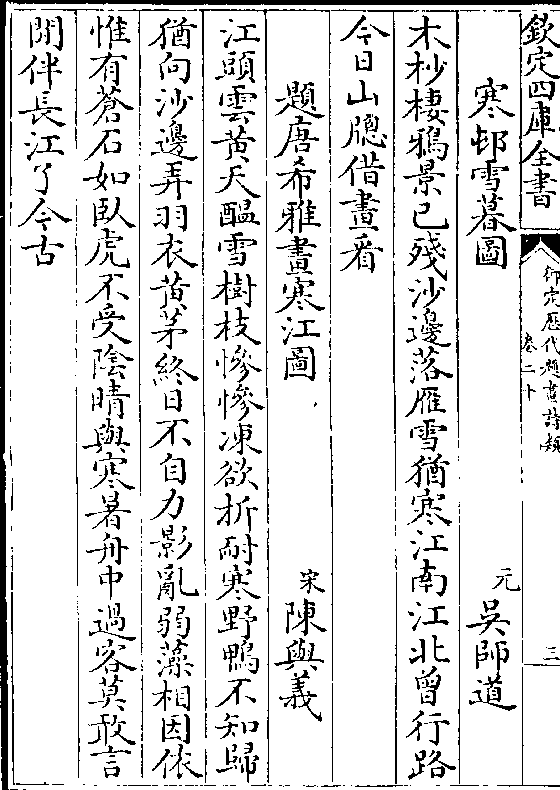 欽定四庫全書
御定歷代題畫詩類
卷二十
三
寒邨雪暮圖
元
吳師道
木杪棲鴉景已殘沙邊落雁雪猶寒江南江北曾行路
今日山牕借畫看
題唐希雅畫寒江圖
宋
陳與義
江頭雲黃天醖雪樹枝慘慘凍欲折耐寒野鴨不知歸
猶向沙邊弄羽衣黄茅終日不自力影亂弱藻相因依
惟有蒼石如臥虎不受陰晴與寒暑舟中過客莫敢言
閒伴長江了今古